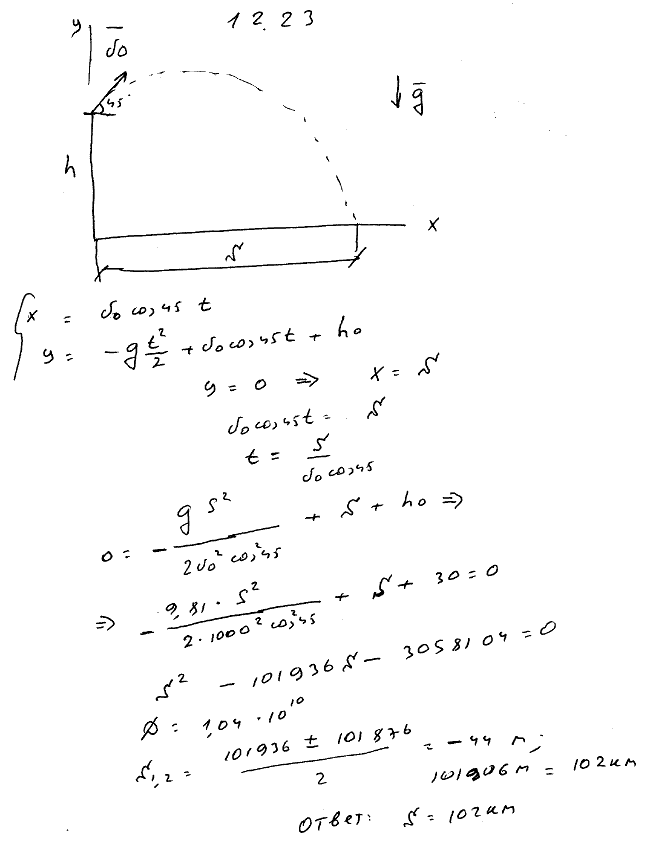 12.23
y v̅₀
45°
g̅
h
x
S
x = v₀ cos 45 t
y = -g t²/2 + v₀ cos 45 t + h₀
y = 0 ⇒ x = S
v₀ cos 45 t = S
t = S / v₀ cos 45
0 = - g S² / 2 v₀² cos² 45 + S + h₀ ⇒
⇒ - 9,81 · S² / 2 · 1000² cos² 45 + S + 30 = 0
S² - 101936 S - 3058104 = 0
D = 1,04 · 10¹⁰
S₁,₂ = 101936 ± 101876 / 2 = -44 м;
101906 м = 102 км
Ответ: S = 102 км